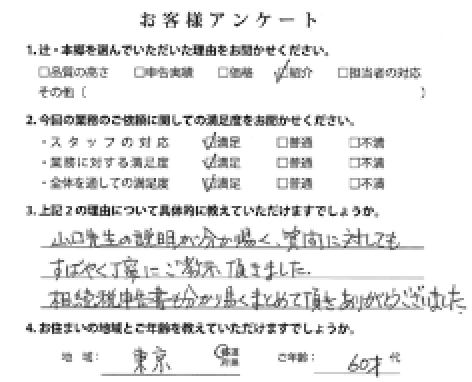 お客様アンケート
1. 辻・本郷を選んでいただいた理由をお聞かせください。
□品質の高さ □申告実績 □価格 ☑紹介 □担当者の対応
その他（ ）
2. 今回の業務のご依頼に関しての満足度をお聞かせください。
・スタッフの対応 ☑満足 □普通 □不満
・業務に対する満足度 ☑満足 □普通 □不満
・全体を通しての満足度 ☑満足 □普通 □不満
3. 上記2の理由について具体的に教えていただけますでしょうか。
山口先生の説明が分か易く、質問に対しても
すばやく丁寧にご教示頂きました。
相続税申告書も分かり易くまとめて頂きありがとうございました
4. お住まいの地域とご年齢を教えていただけますでしょうか。
地域： 東京 都道府県 ご年齢： 60才 代